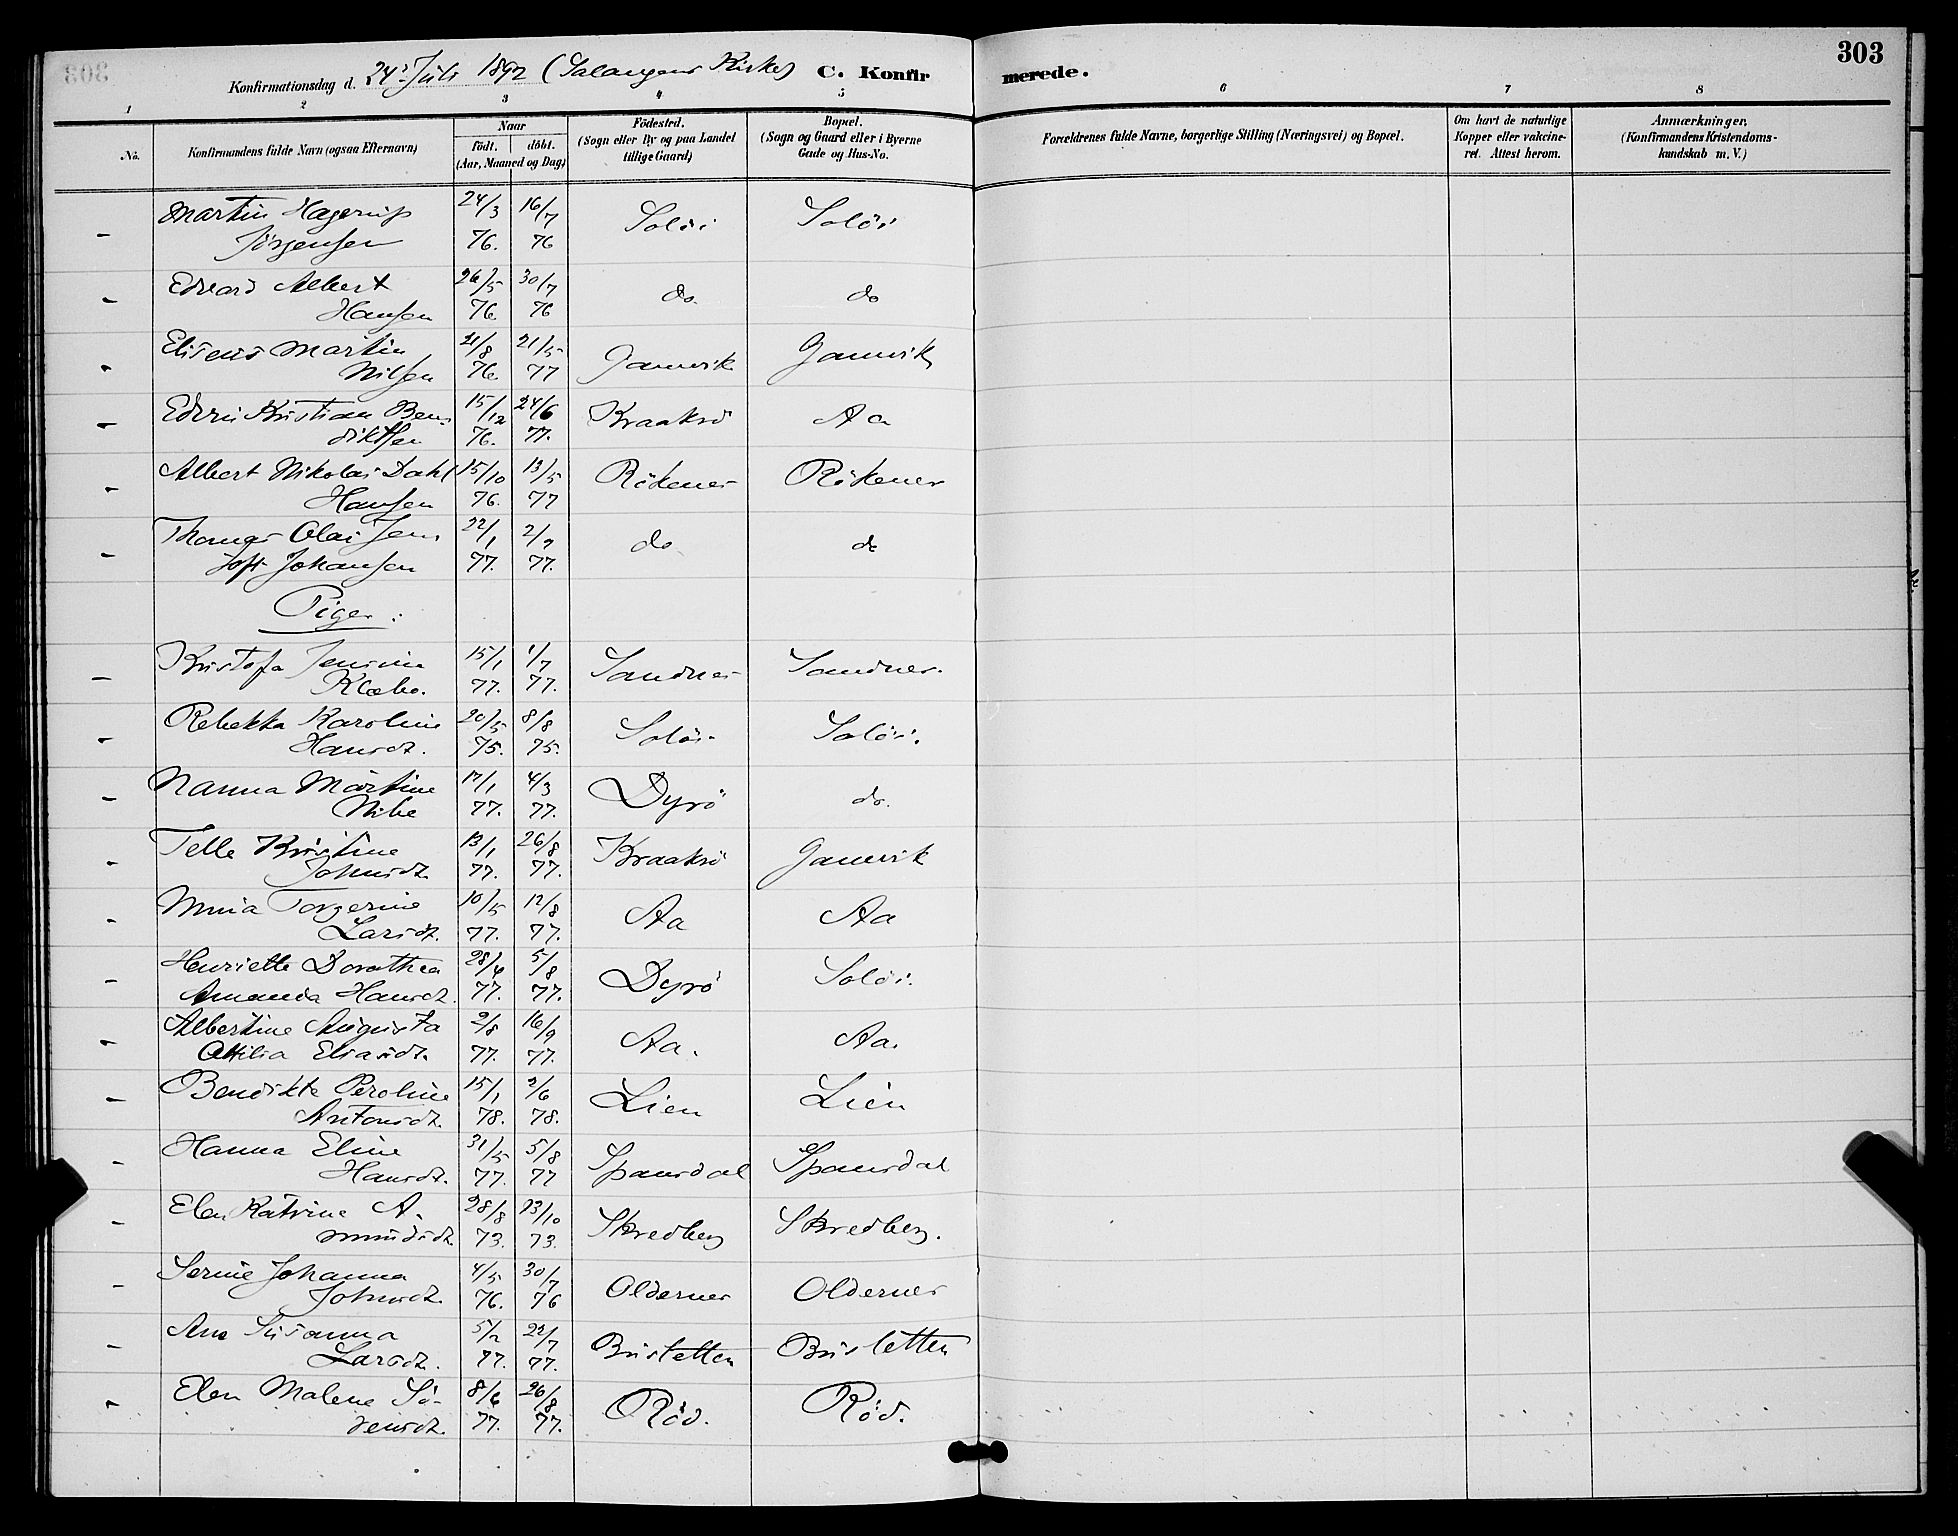 303
Konfirmationsdag d. 24de Juli 1892 (Salangens Kirke) C. Konfirmerede.
1 2 3 4 5 6 7 8
No. Konfirmandens fulde Navn (ogsaa Efternavn) Naar født. døbt. (Aar, Maaned og Dag) Fødested. (Sogn eller By og paa Landet tillige Gaard) Bopæl. (Sogn og Gaard eller i Byerne Gade og Hus-No. Forældrenes fulde Navne, borgerlige Stilling (Næringsvei) og Bopæl. Om havt de naturlige Kopper eller vakcineret. Attest herom. Anmærkninger, (Konfirmandens Kristendomskundskab m. V.)
- Martin Hagerup 24/3 16/7 Soløi Soløi
Jörgensen 76. 76
- Edvard Albert 26/5 30/7 do. do
Hansen 76 76
- Eliseus Martin 21/8 21/5 Gamvik Gamvik
Nilsen 76 77
- Edvin Kristian Ben- 15/12 24/6 Kraaksö Aa
diktsen 76. 77.
- Albert Nikolai Dahl 15/10 13/5 Rökenes Rökenes
Hansen 76. 77
- Thomas Olai Jens 22/1 2/7 do. do
Johansen 77. 77.
Piger:
- Kristofa Jensine 15/1 1/7 Sandnes Sandnes.
Klæbo. 77. 77.
- Rebekka Karoline 20/5 8/8 Soløi Soløi.
Hansdt. 75. 75.
- Nanna Martine 17/1 4/3 Dyrö do.
Nibe 77. 77.
- Telle Kristine 13/1 26/8 Kraaksö Gamvik
Johnsdt. 77. 77.
- Mina Torgerine 10/5 12/8 Aa Aa
Larsdt. 77. 77.
- Henriette Dorothea 28/6 5/8 Dyrö Soløi.
Amanda Hansdt. 77. 77.
- Albertine Augusta 2/8 16/9 Aa. Aa.
Otilia Eliasdt. 77. 77.
- Bendikte Peroline 15/1 2/6 Lien Lien
Antonsdt. 78. 78.
- Hanna Eline 31/5 5/8 Spansdal Spansdal
Hansdt. 77. 77
- Elen Katrine A- 28/8 13/10 Skredberg Skredberg.
mundsdt. 73. 73.
- Serine Johanna 4/5 30/7 Oldernes Oldernes
Johnsdt. 76. 76
- Ane Susanna 5/2 22/7 Brustetten Brustetten
Larsdt. 77. 77.
- Elen Malene Sö- 8/6 26/8 Röd. Röd.
rensdt. 77. 77.